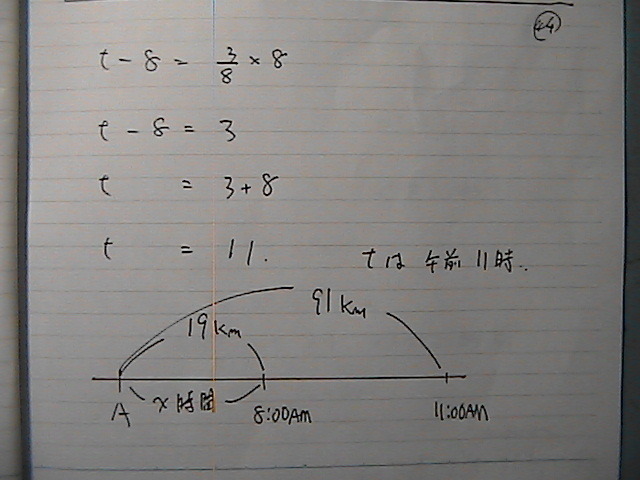 44
t - 8 = 3/8 × 8
t - 8 = 3
t = 3 + 8
t = 11.
tは 午前 11時.
91 km
19 km
x 時間
A 8:00AM 11:00AM